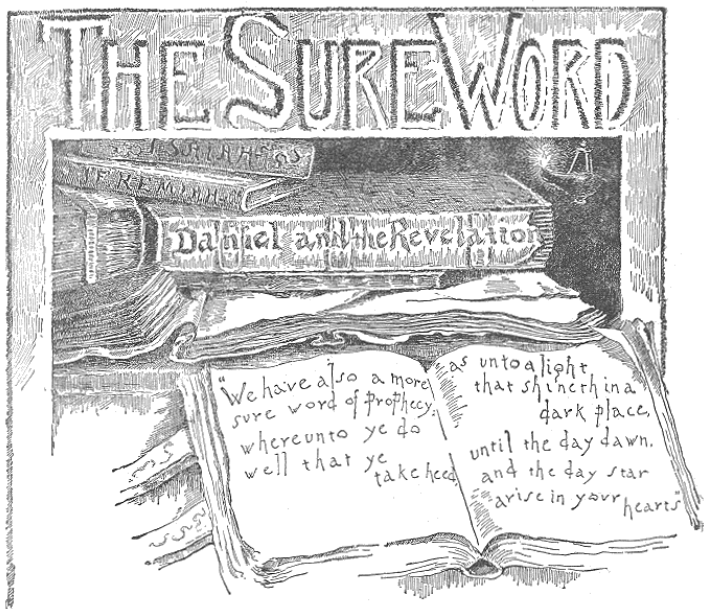 THE SURE WORD
ISAIAH
JEREMIAH
Daniel and the Revelation
"We have also a more
sure word of prophecy;
whereunto ye do
well that ye
take heed,
as unto a light
that shineth in a
dark place,
until the day dawn.
and the day star
arise in your hearts"